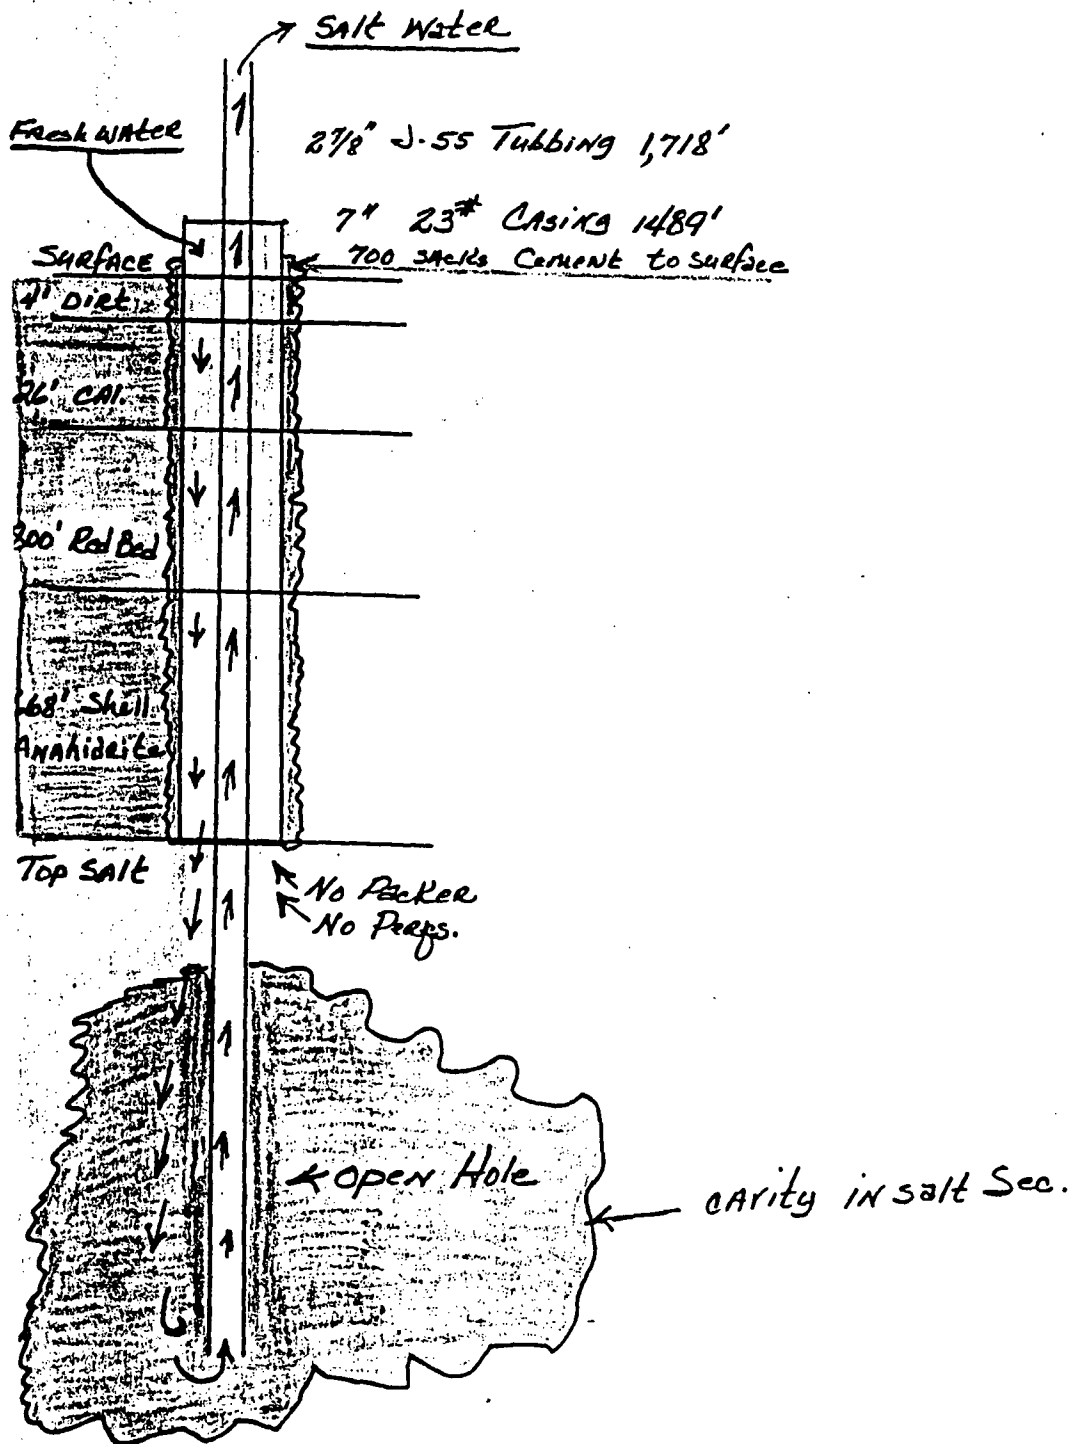 Salt Water
Fresh Water
2 7/8" J-55 Tubbing 1,718'
7" 23# Casing 1489'
700 sacks Cement to surface
Surface
Dirt
26' CAl.
Red Bed
Shell
Anahidrite
Top Salt
No Packer
No Perfs.
Open Hole
cavity in salt Sec.